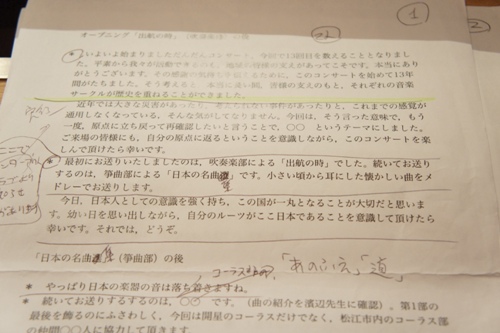 ①
オープニング「出航の時」(吹奏楽)の後
* いよいよ始まりましただんだんコンサート、今回で13回目を数えることとなりまし
た。平素から我々が活動できるのも、地域の皆様の支えがあってこそです。本当にあり
がとうございます。その感謝の気持ちを届けるために、このコンサートを始めて13年
間がたちました。そう考えると、本当に長い間、皆様の支えのもと、それぞれの音楽
サークルが歴史を重ねることができました。
近年では大きな災害があったり、考えられない事件があったりと、これまでの感覚が
通用しなくなっている、そんな気がしてなりません。今回は、そう言った意味で、もう
一度、原点に立ち戻って再確認したいと言うことで、〇〇 というテーマにしました。
ご来場の皆様にも、自分の原点に返るということを意識しながら、このコンサートを楽
しんで頂けたら幸いです。
* 最初にお送りいたしましたのは、吹奏楽部による「出航の時」でした。続いてお送り
するのは、箏曲部による「日本の名曲選」です。小さい頃から耳にした懐かしい曲をメ
ドレーでお送りします。
今日、日本人としての意識を強く持ち、この国が一丸となることが大切だと思いま
す。幼い日を思い出しながら、自分のルーツがここ日本であることを意識して頂けたら
幸いです。それでは、どうぞ。
「日本の名曲選」(箏曲部)の後
コーラス
「道」
* やっぱり日本の楽器の音は落ち着きますね。
* 続いてお送りするするのは、〇〇 です。(曲の紹介を濱辺先生に確認)。第1部の
最後を飾るのにふさわしく、今回は開星のコーラスだけでなく、松江市内のコーラス部
の仲間〇〇人に協力して頂きます。